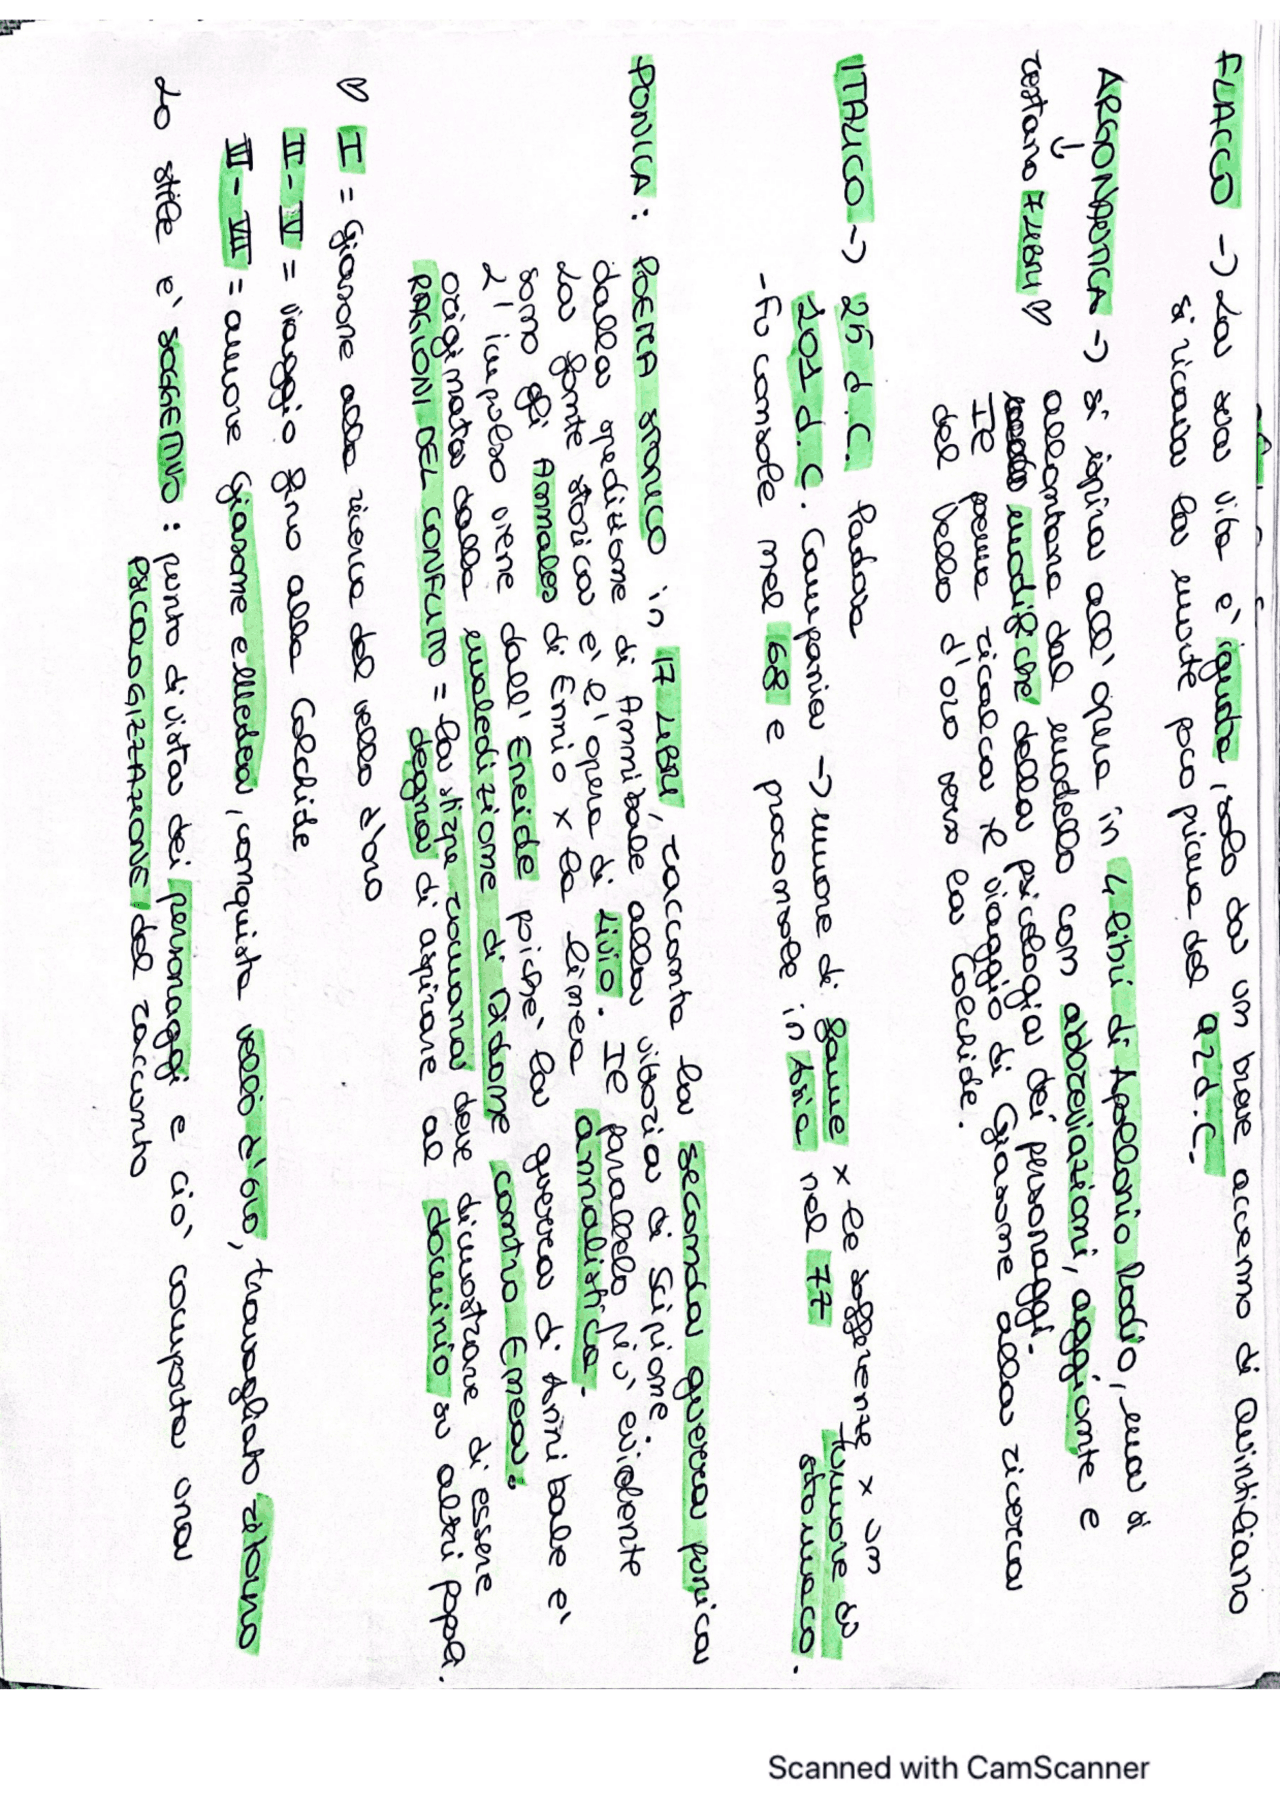 FLACCO -> La sua vita è ignota, solo da un breve accenno di Quintiliano
si ricava la morte poco prima del 92 d.C.
ARGONAUTICA -> si ispira all'opera in 4 libri di Apollonio Rodio, ma si
↓
restano 7 LIBRI ♡
allontana dal modello con abbreviazioni, aggiunte e
modifiche della psicologia dei personaggi.
Il poema ricalca il viaggio di Giasone alla ricerca
del vello d'oro verso la Colchide.
ITALICO -> 25 d.C. Padova
101 d.C. Campania -> muore di fame x le sofferenze x un
tumore di
stomaco.
- Fu console nel 68 e proconsole in Asia nel 77
PUNICA: POEMA STORICO in 17 LIBRI, racconta la seconda guerra punica
dalla spedizione di Annibale alla vittoria di Scipione.
La fonte storica è l'opera di Livio. Il parallelo più evidente
sono gli Annales di Ennio x la linea annalistica.
L'impulso viene dall'Eneide poiché la guerra di Annibale è
originata dalla maledizione di Didone contro Enea.
RAGIONI DEL CONFLITTO = la stirpe romana deve dimostrare di essere
degna di aspirare al dominio su altri popoli.
♡ I = Giasone alla ricerca del vello d'oro
II - V = viaggio fino alla Colchide
VI - VII = amore Giasone e Medea, conquista vello d'oro, travagliato ritorno
Lo stile è SOGGETTIVO: punto di vista dei personaggi e ciò comporta una
PSICOLOGIZZAZIONE del racconto
Scanned with CamScanner